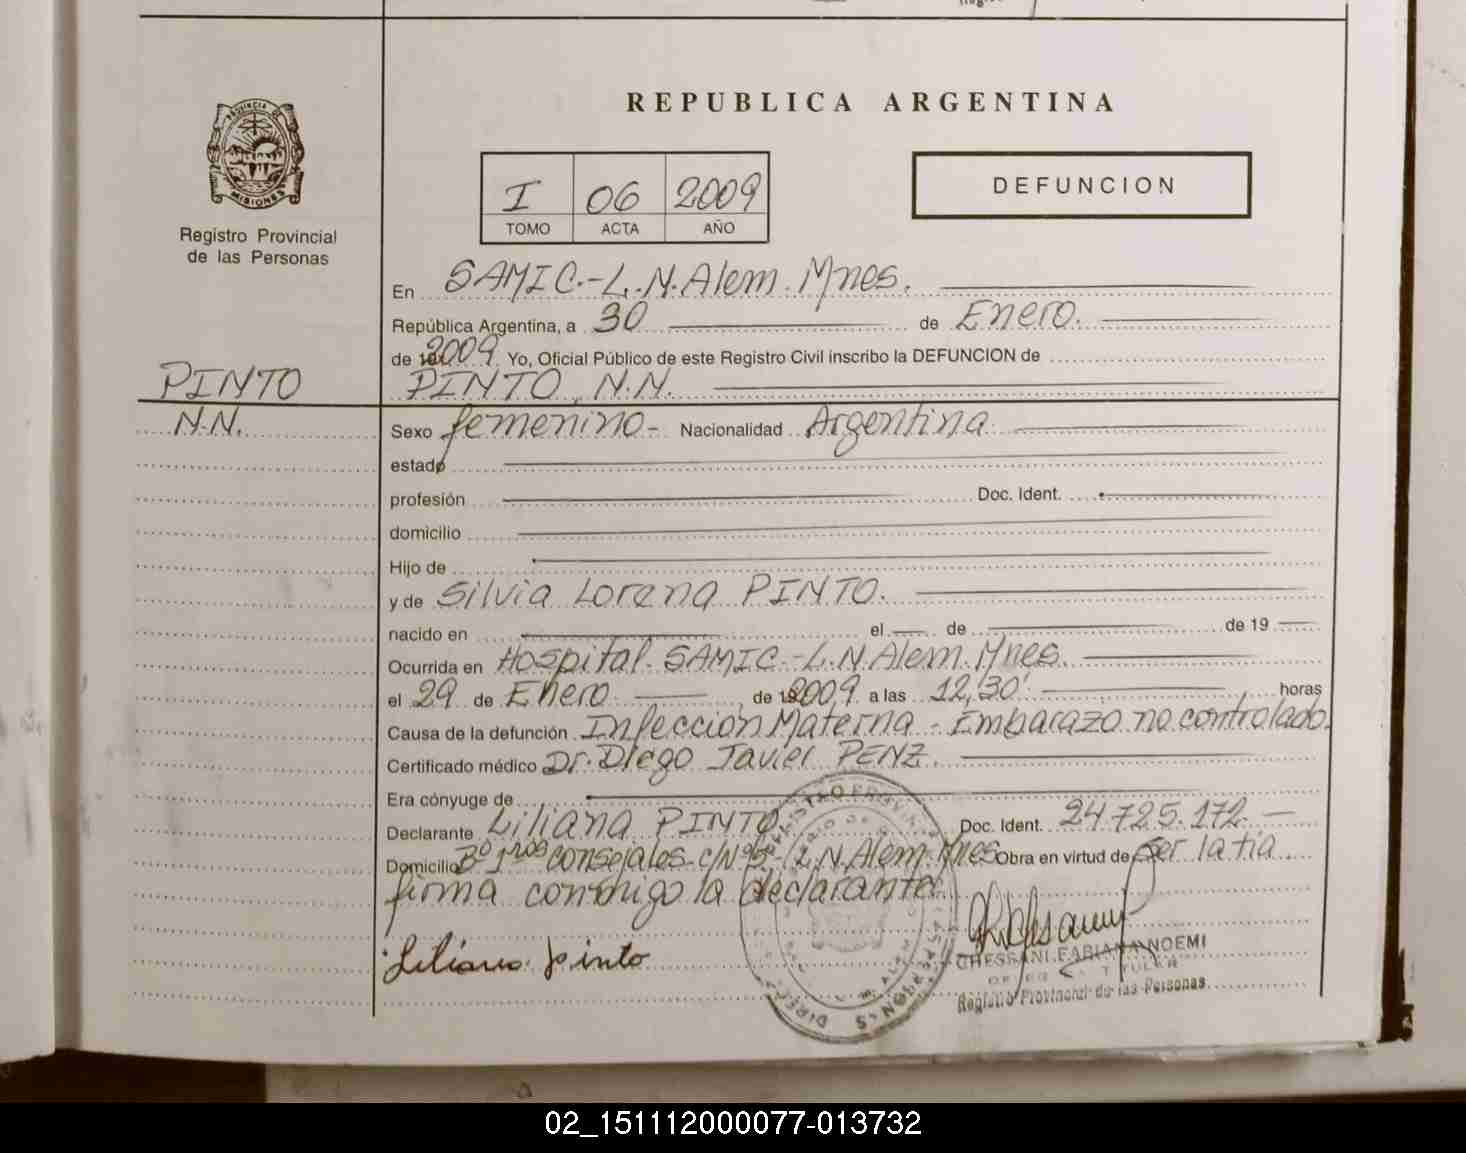 REPUBLICA ARGENTINA
PROVINCIA DE
MISIONES
Registro Provincial
de las Personas
I 06 2009
TOMO ACTA AÑO
DEFUNCION
En SAMIC.-L.N.Alem. Mnes.
República Argentina, a 30 de Enero.
de 2009. Yo, Oficial Público de este Registro Civil inscribo la DEFUNCION de
PINTO PINTO, N.N.
N.N.
Sexo femenino- Nacionalidad Argentina
estado
profesión Doc. Ident.
domicilio
Hijo de
y de Silvia Lorena PINTO.
nacido en el de de 19
Ocurrida en Hospital SAMIC.-L.N.Alem.Mnes.
el 29 de Enero de 2009. a las 12,30' horas
Causa de la defunción Infección Materna - Embarazo no controlado.
Certificado médico Dr. Diego Javier PENZ.
Era cónyuge de
Declarante Liliana PINTO Doc. Ident. 24.725.172.-
Domicilio Bº 1ros consejales c/Nº5-L.N.Alem.Mnes Obra en virtud de Ser la tia
firma conmigo la declarante.
Liliana pinto
CHESSANI FABIANA NOEMI
Registro Provincial de las Personas
02_151112000077-013732